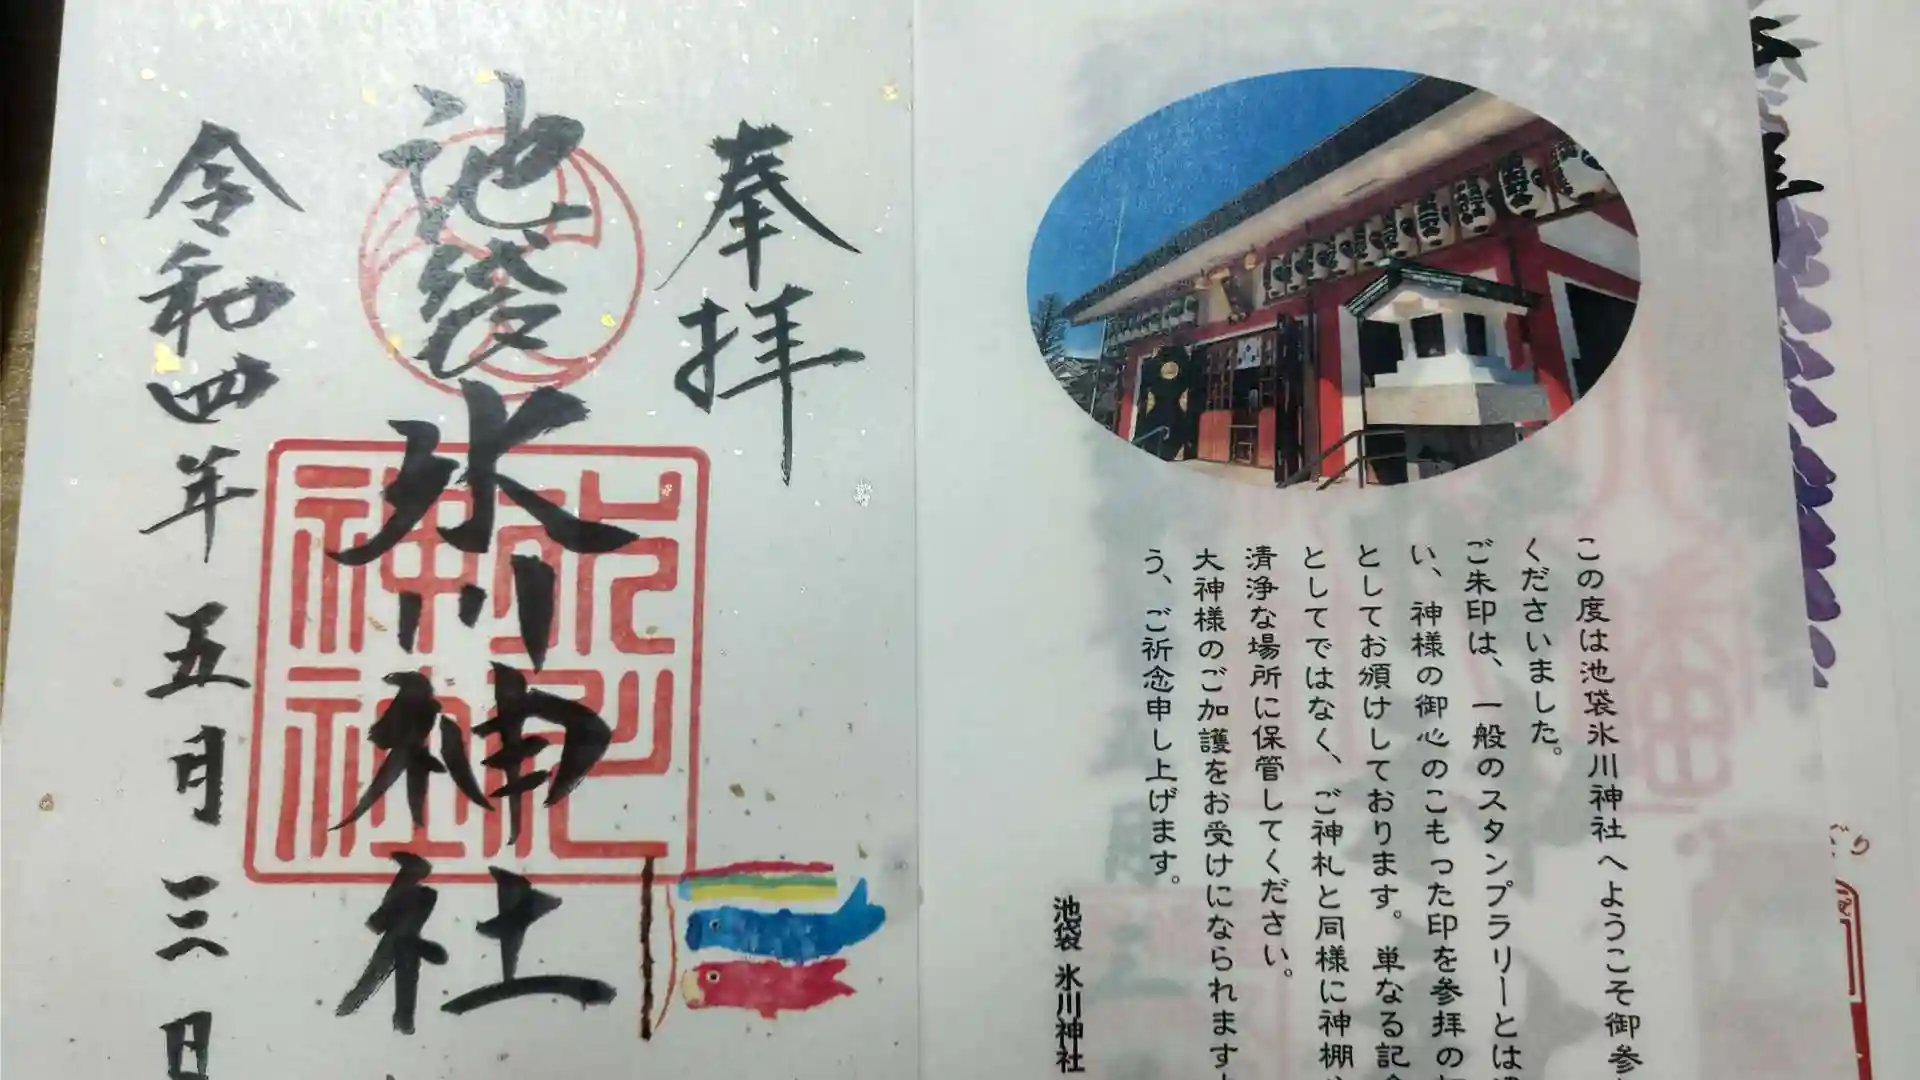 奉拝
池袋氷川神社
令和四年五月三日
この度は池袋氷川神社へようこそ御参
くださいました。
ご朱印は、一般のスタンプラリーとは
い、神様の御心のこもった印を参拝の
としてお頒けしております。単なる記念
としてではなく、ご神札と同様に神棚
清浄な場所に保管してください。
大神様のご加護をお受けになられます
う、ご祈念申し上げます。
池袋 氷川神社